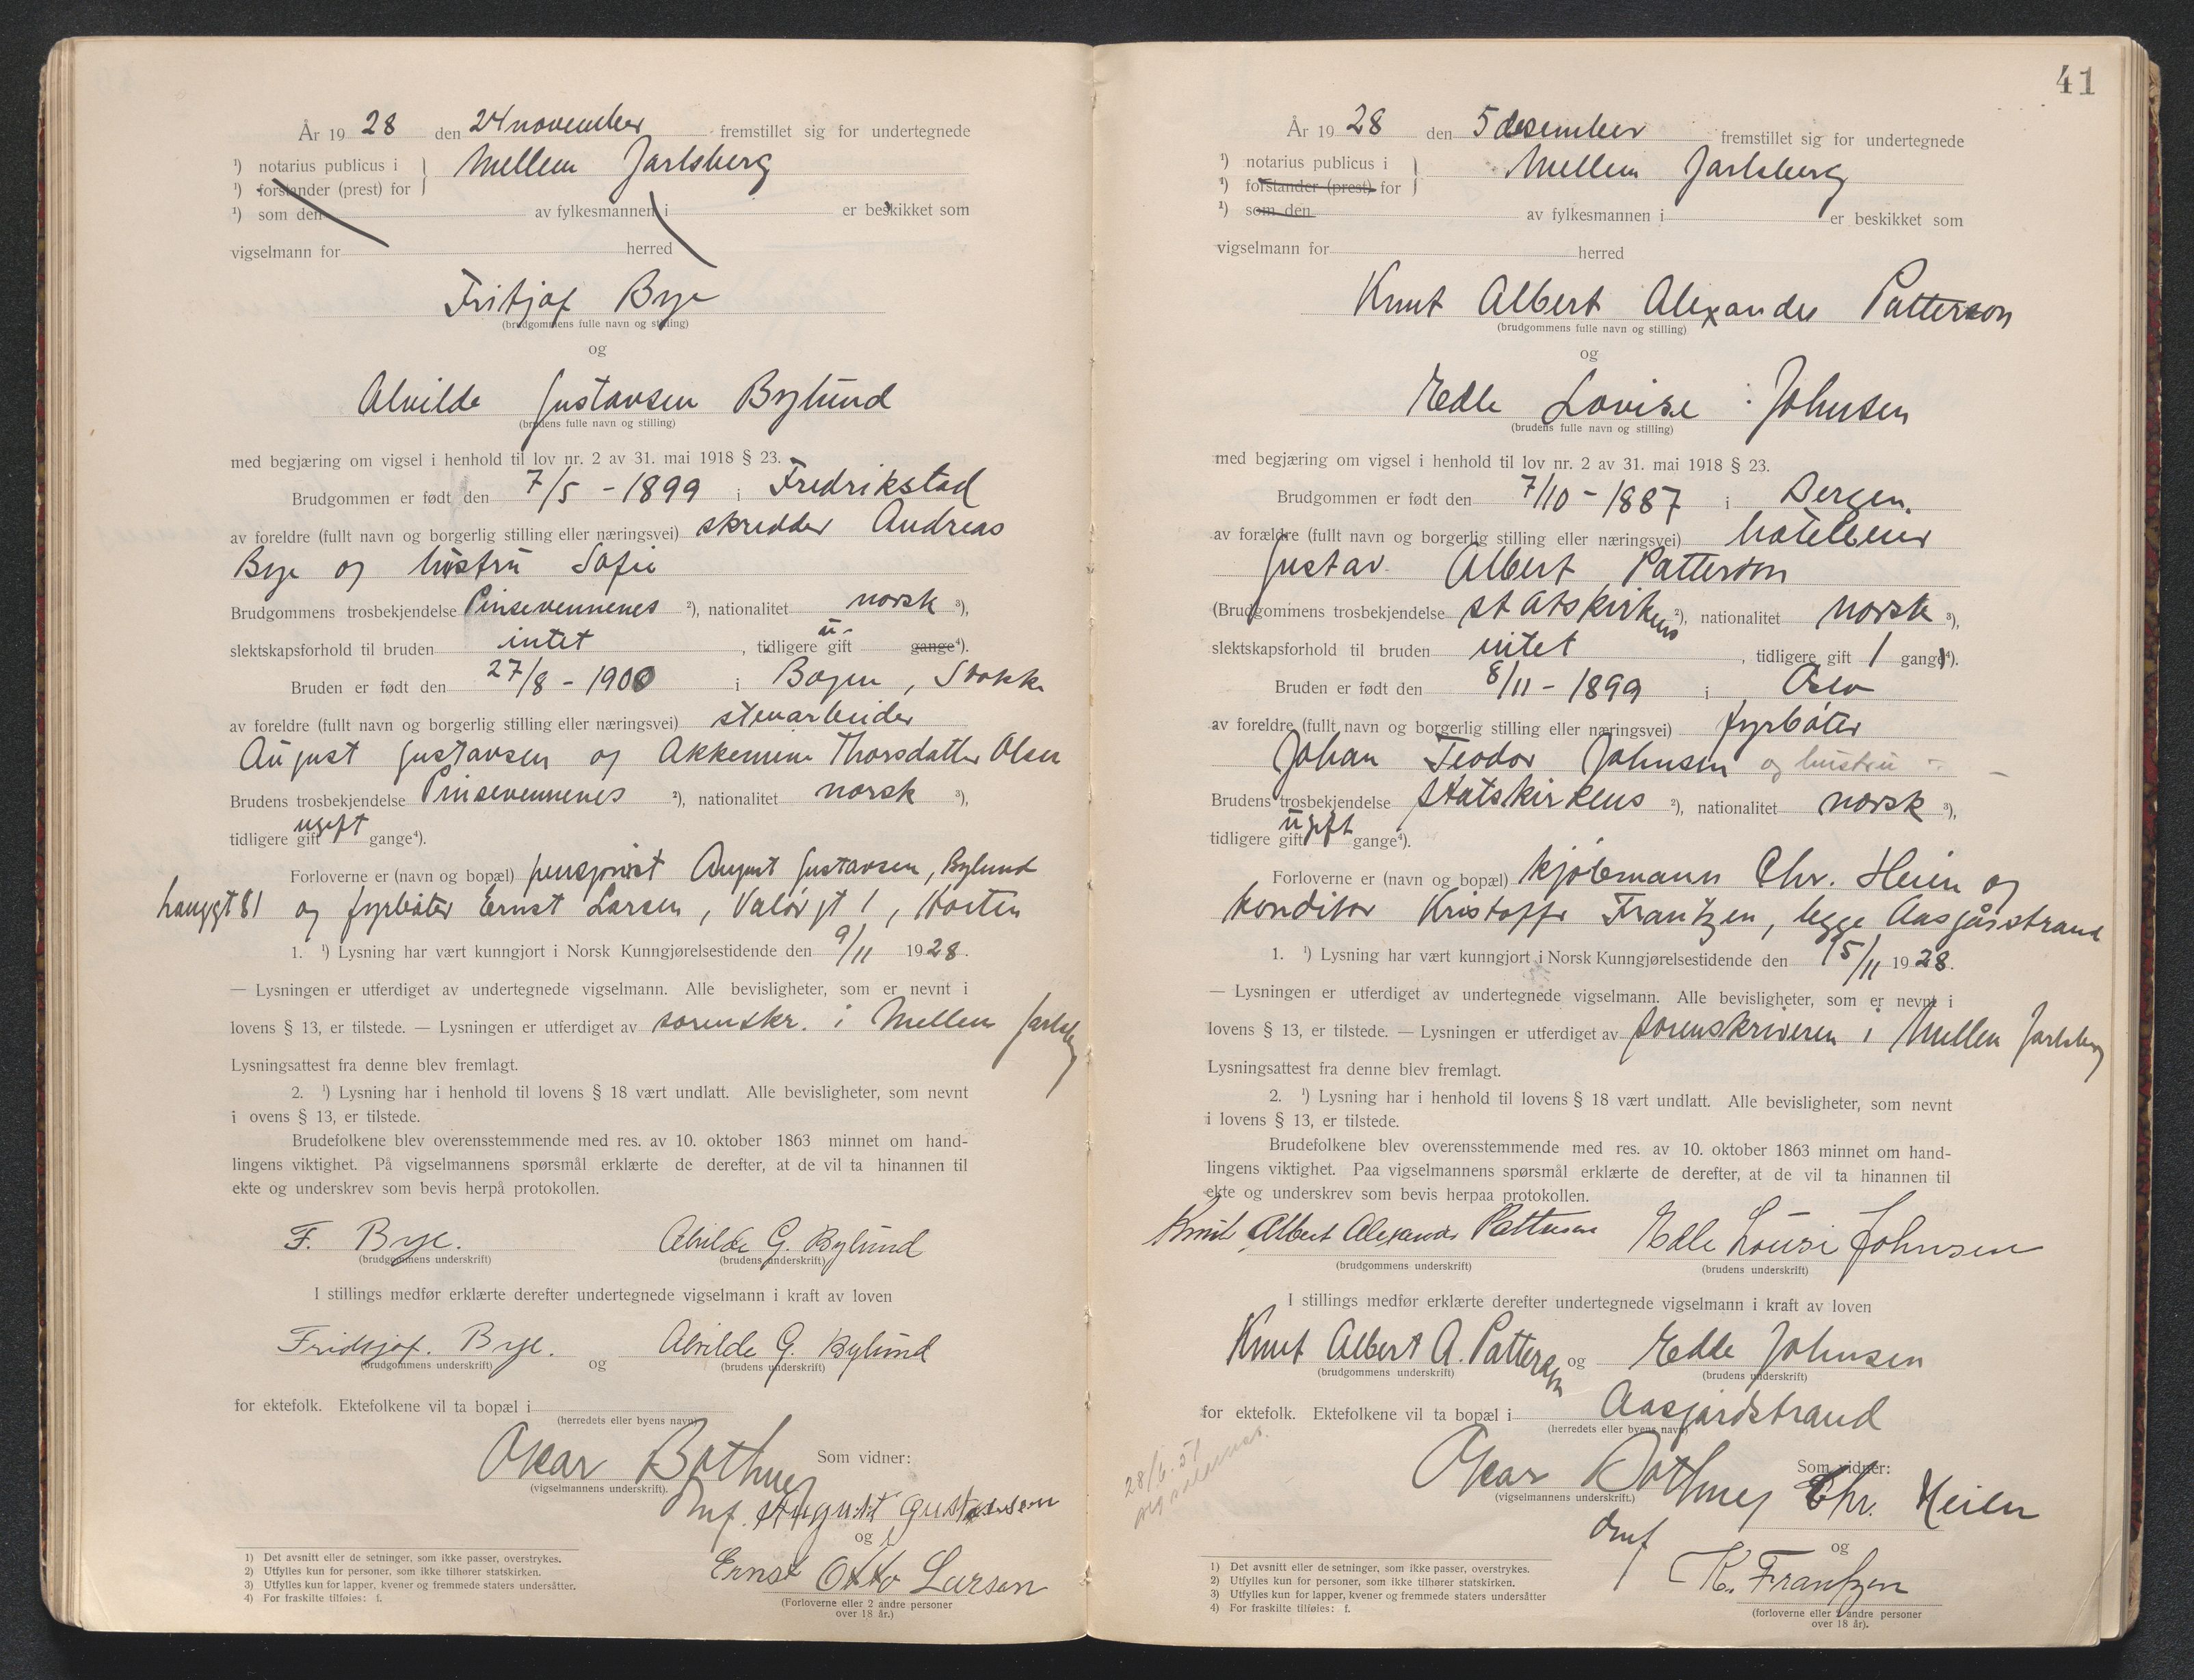 År 19 28 den 24 november fremstillet sig for undertegnede
¹) notarius publicus i } Mellem Jarlsberg
¹) forstander (prest) for
¹) som den av fylkesmannen i er beskikket som
vigselmann for herred
Fritjof Bye
(brudgommens fulle navn og stilling)
og
Alvilde Gustavsen Bylund
(brudens fulle navn og stilling)
med begjæring om vigsel i henhold til lov nr. 2 av 31. mai 1918 § 23.
Brudgommen er født den 7/5 - 1899 i Fredrikstad
av foreldre (fullt navn og borgerlig stilling eller næringsvei) skredder Andreas
Bye og hustru Sofie
Brudgommens trosbekjendelse Pinsevennenes ²), nationalitet norsk ³),
slektskapsforhold til bruden intet , tidligere u- gift gange⁴).
Bruden er født den 27/8 - 1900 i Bogen, Stokke
av foreldre (fullt navn og borgerlig stilling eller næringsvei) stenarbeider
August Gustavsen og Akkemine Thorsdatter Olsen
Brudens trosbekjendelse Pinsevennenes ²), nationalitet norsk ³),
tidligere gift ugift gange⁴).
Forloverne er (navn og bopæl) pensjonist August Gustavsen, Bylund
hauggt 81 og fyrbøter Ernst Larsen, Valør gt 1, Horten
1. ¹) Lysning har vært kunngjort i Norsk Kunngjørelsestidende den 9/11 1928.
— Lysningen er utferdiget av undertegnede vigselmann. Alle bevisligheter, som er nevnt i
lovens § 13, er tilstede. — Lysningen er utferdiget av sorenskr. i Mellem Jarlsberg
Lysningsattest fra denne blev fremlagt.
2. ¹) Lysning har i henhold til lovens § 18 vært undlatt. Alle bevisligheter, som nevnt
i ovens § 13, er tilstede.
Brudefolkene blev overensstemmende med res. av 10. oktober 1863 minnet om hand-
lingens viktighet. På vigselmannens spørsmål erklærte de derefter, at de vil ta hinannen til
ekte og underskrev som bevis herpå protokollen.
F. Bye. Alvilde G. Bylund
(brudgommens underskrift) (brudens underskrift)
I stillings medfør erklærte derefter undertegnede vigselmann i kraft av loven
Fridtjof. Bye. og Alvilde G. Bylund
(brudgommens underskrift) (brudens underskrift)
for ektefolk. Ektefolkene vil ta bopæl i
(herredets eller byens navn)
Oskar Bothner Som vidner:
(vigselmannens underskrift).
August Gustavsen
og
Ernst Otto Larsen
(Forloverne eller 2 andre personer
over 18 år.)
1) Det avsnitt eller de setninger, som ikke passer, overstrykes.
2) Utfylles kun for personer, som ikke tilhører statskirken.
3) Utfylles kun for lapper, kvener og fremmede staters undersåtter.
4) For fraskilte tilføies: f.
41
År 19 28 den 5 desember fremstillet sig for undertegnede
¹) notarius publicus i } Mellem Jarlsberg
¹) forstander (prest) for
¹) som den av fylkesmannen i er beskikket som
vigselmann for herred
Knut Albert Alexander Patterson
(brudgommens fulle navn og stilling)
og
Edle Lovise Johnsen
(brudens fulle navn og stilling)
med begjæring om vigsel i henhold til lov nr. 2 av 31. mai 1918 § 23.
Brudgommen er født den 7/10 - 1887 i Bergen.
av forældre (fullt navn og borgerlig stilling eller næringsvei) hotelleier
Gustav Albert Patterson
(Brudgommens trosbekjendelse statskirkens ²), nationalitet norsk ³),
slektskapsforhold til bruden intet , tidligere gift 1 gang⁴).
Bruden er født den 8/11 - 1899 i Oslo
av foreldre (fullt navn og borgerlig stilling eller næringsvei) fyrbøter
Johan Teodor Johnsen og hustru -
Brudens trosbekjendelse statskirkens ²), nationalitet norsk ³),
tidligere gift ugift gange⁴).
Forloverne er (navn og bopæl) kjøbmann Chr. Heien og
konditor Kristoffer Frantzen, begge Aasgårsstrand
1. ¹) Lysning har vært kunngjort i Norsk Kunngjørelsestidende den 15/11 1928.
— Lysningen er utferdiget av undertegnede vigselmann. Alle bevisligheter, som er nevnt i
lovens § 13, er tilstede. — Lysningen er utferdiget av sorenskriveren i Mellem Jarlsberg
Lysningsattest fra denne blev fremlagt.
2. ¹) Lysning har i henhold til lovens § 18 vært undlatt. Alle bevisligheter, som nevnt
i lovens § 13, er tilstede.
Brudefolkene blev overensstemmende med res. av 10. oktober 1863 minnet om hand-
lingens viktighet. Paa vigselmannens spørsmål erklærte de derefter, at de vil ta hinannen til
ekte og underskrev som bevis herpaa protokollen.
Knut Albert Alexander Patterson Edle Lousi Johnsen
(brudgommens underskrift) (brudens underskrift)
I stillings medfør erklærte derefter undertegnede vigselmann i kraft av loven
Knut Albert A. Patterson og Edle Johnsen
(brudgommens underskrift) (brudens underskrift)
for ektefolk. Ektefolkene vil ta bopæl i Aasgårdstrand
(herredets eller byens navn)
28/6.51
Oskar Bothner Som vidner:
(vigselmannens underskrift.)
Chr. Heien
og
K. Frantzen
(forloverne eller 2 andre personer
over 18 år).
1) Det avsnitt eller de setninger, som ikke passer, overstrykes.
2) Utfylles kun for personer, som ikke tilhører statskirken.
3) Utfylles kun for lapper, kvener og fremmede staters undersåtter
4) For fraskilte tilføies: f.